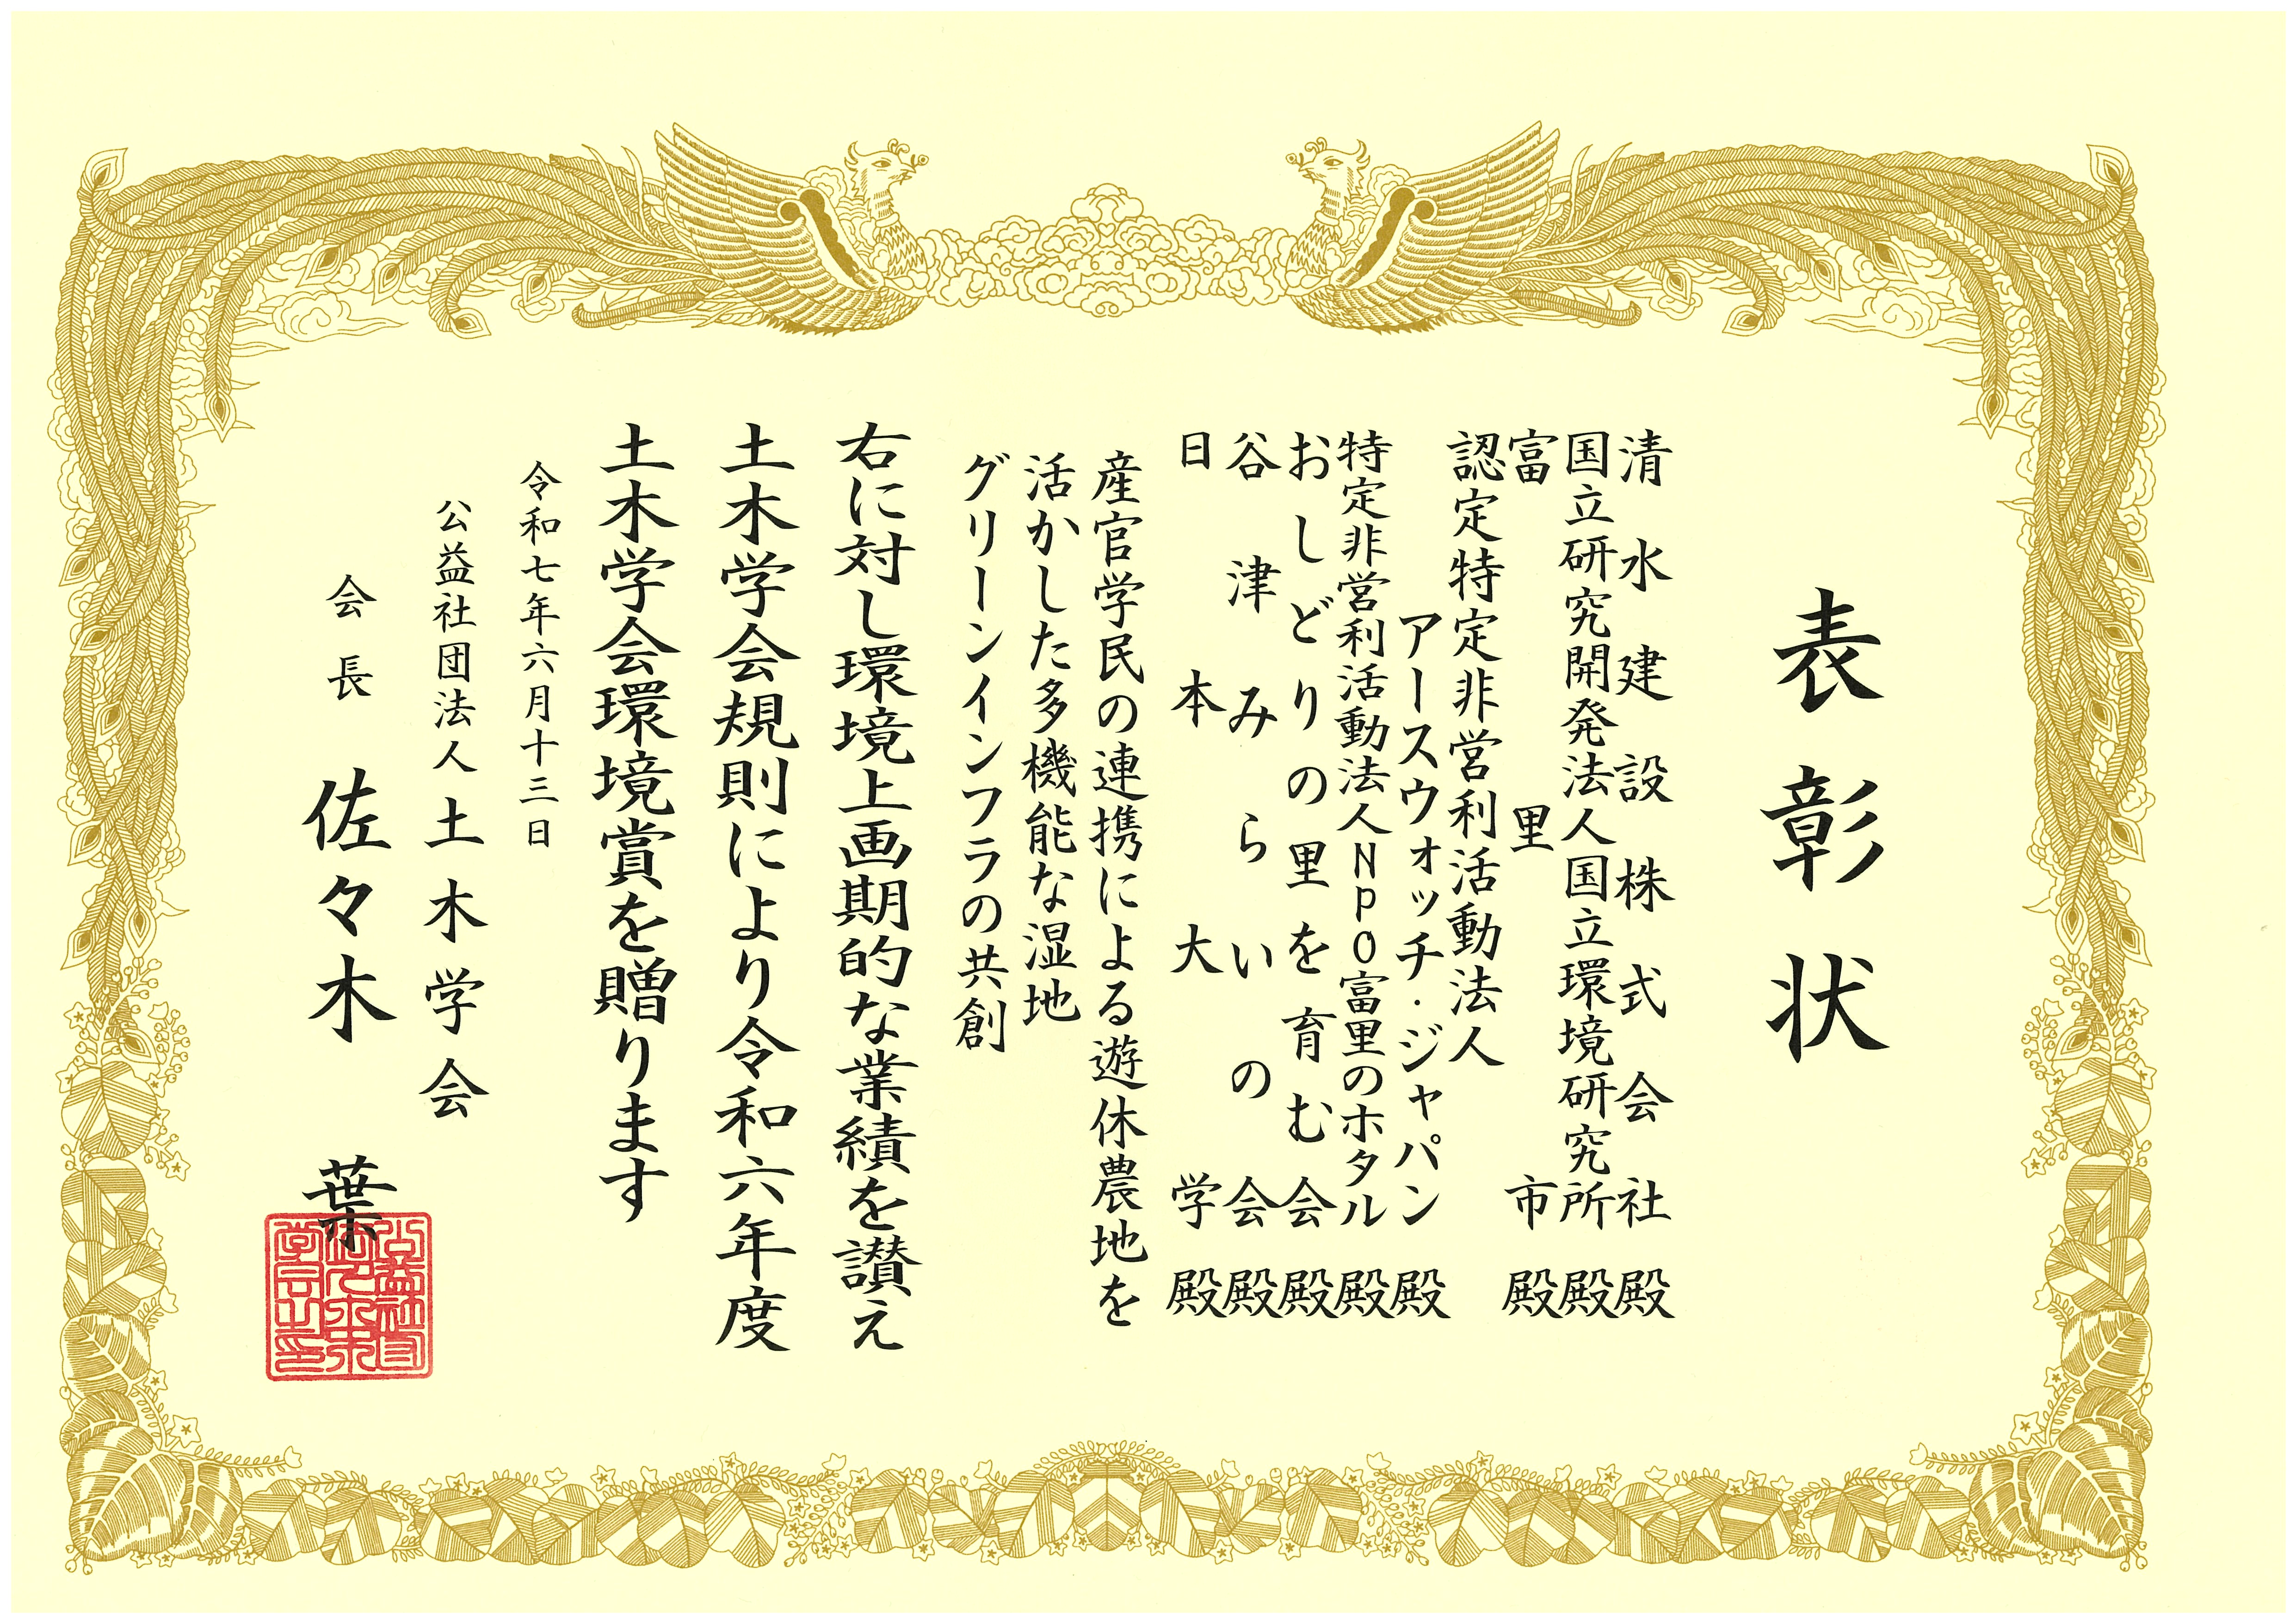 表彰状
清水建設株式会社殿
国立研究開発法人国立環境研究所殿
富里市殿
認定特定非営利活動法人
アースウォッチ・ジャパン殿
特定非営利活動法人NpO富里のホタル殿
おしどりの里を育む会殿
谷津みらいの会殿
日本大学殿
産官学民の連携による遊休農地を
活かした多機能な湿地
グリーンインフラの共創
右に対し環境上画期的な業績を讃え
土木学会規則により令和六年度
土木学会環境賞を贈ります
令和七年六月十三日
公益社団法人土木学会
会長 佐々木 葉